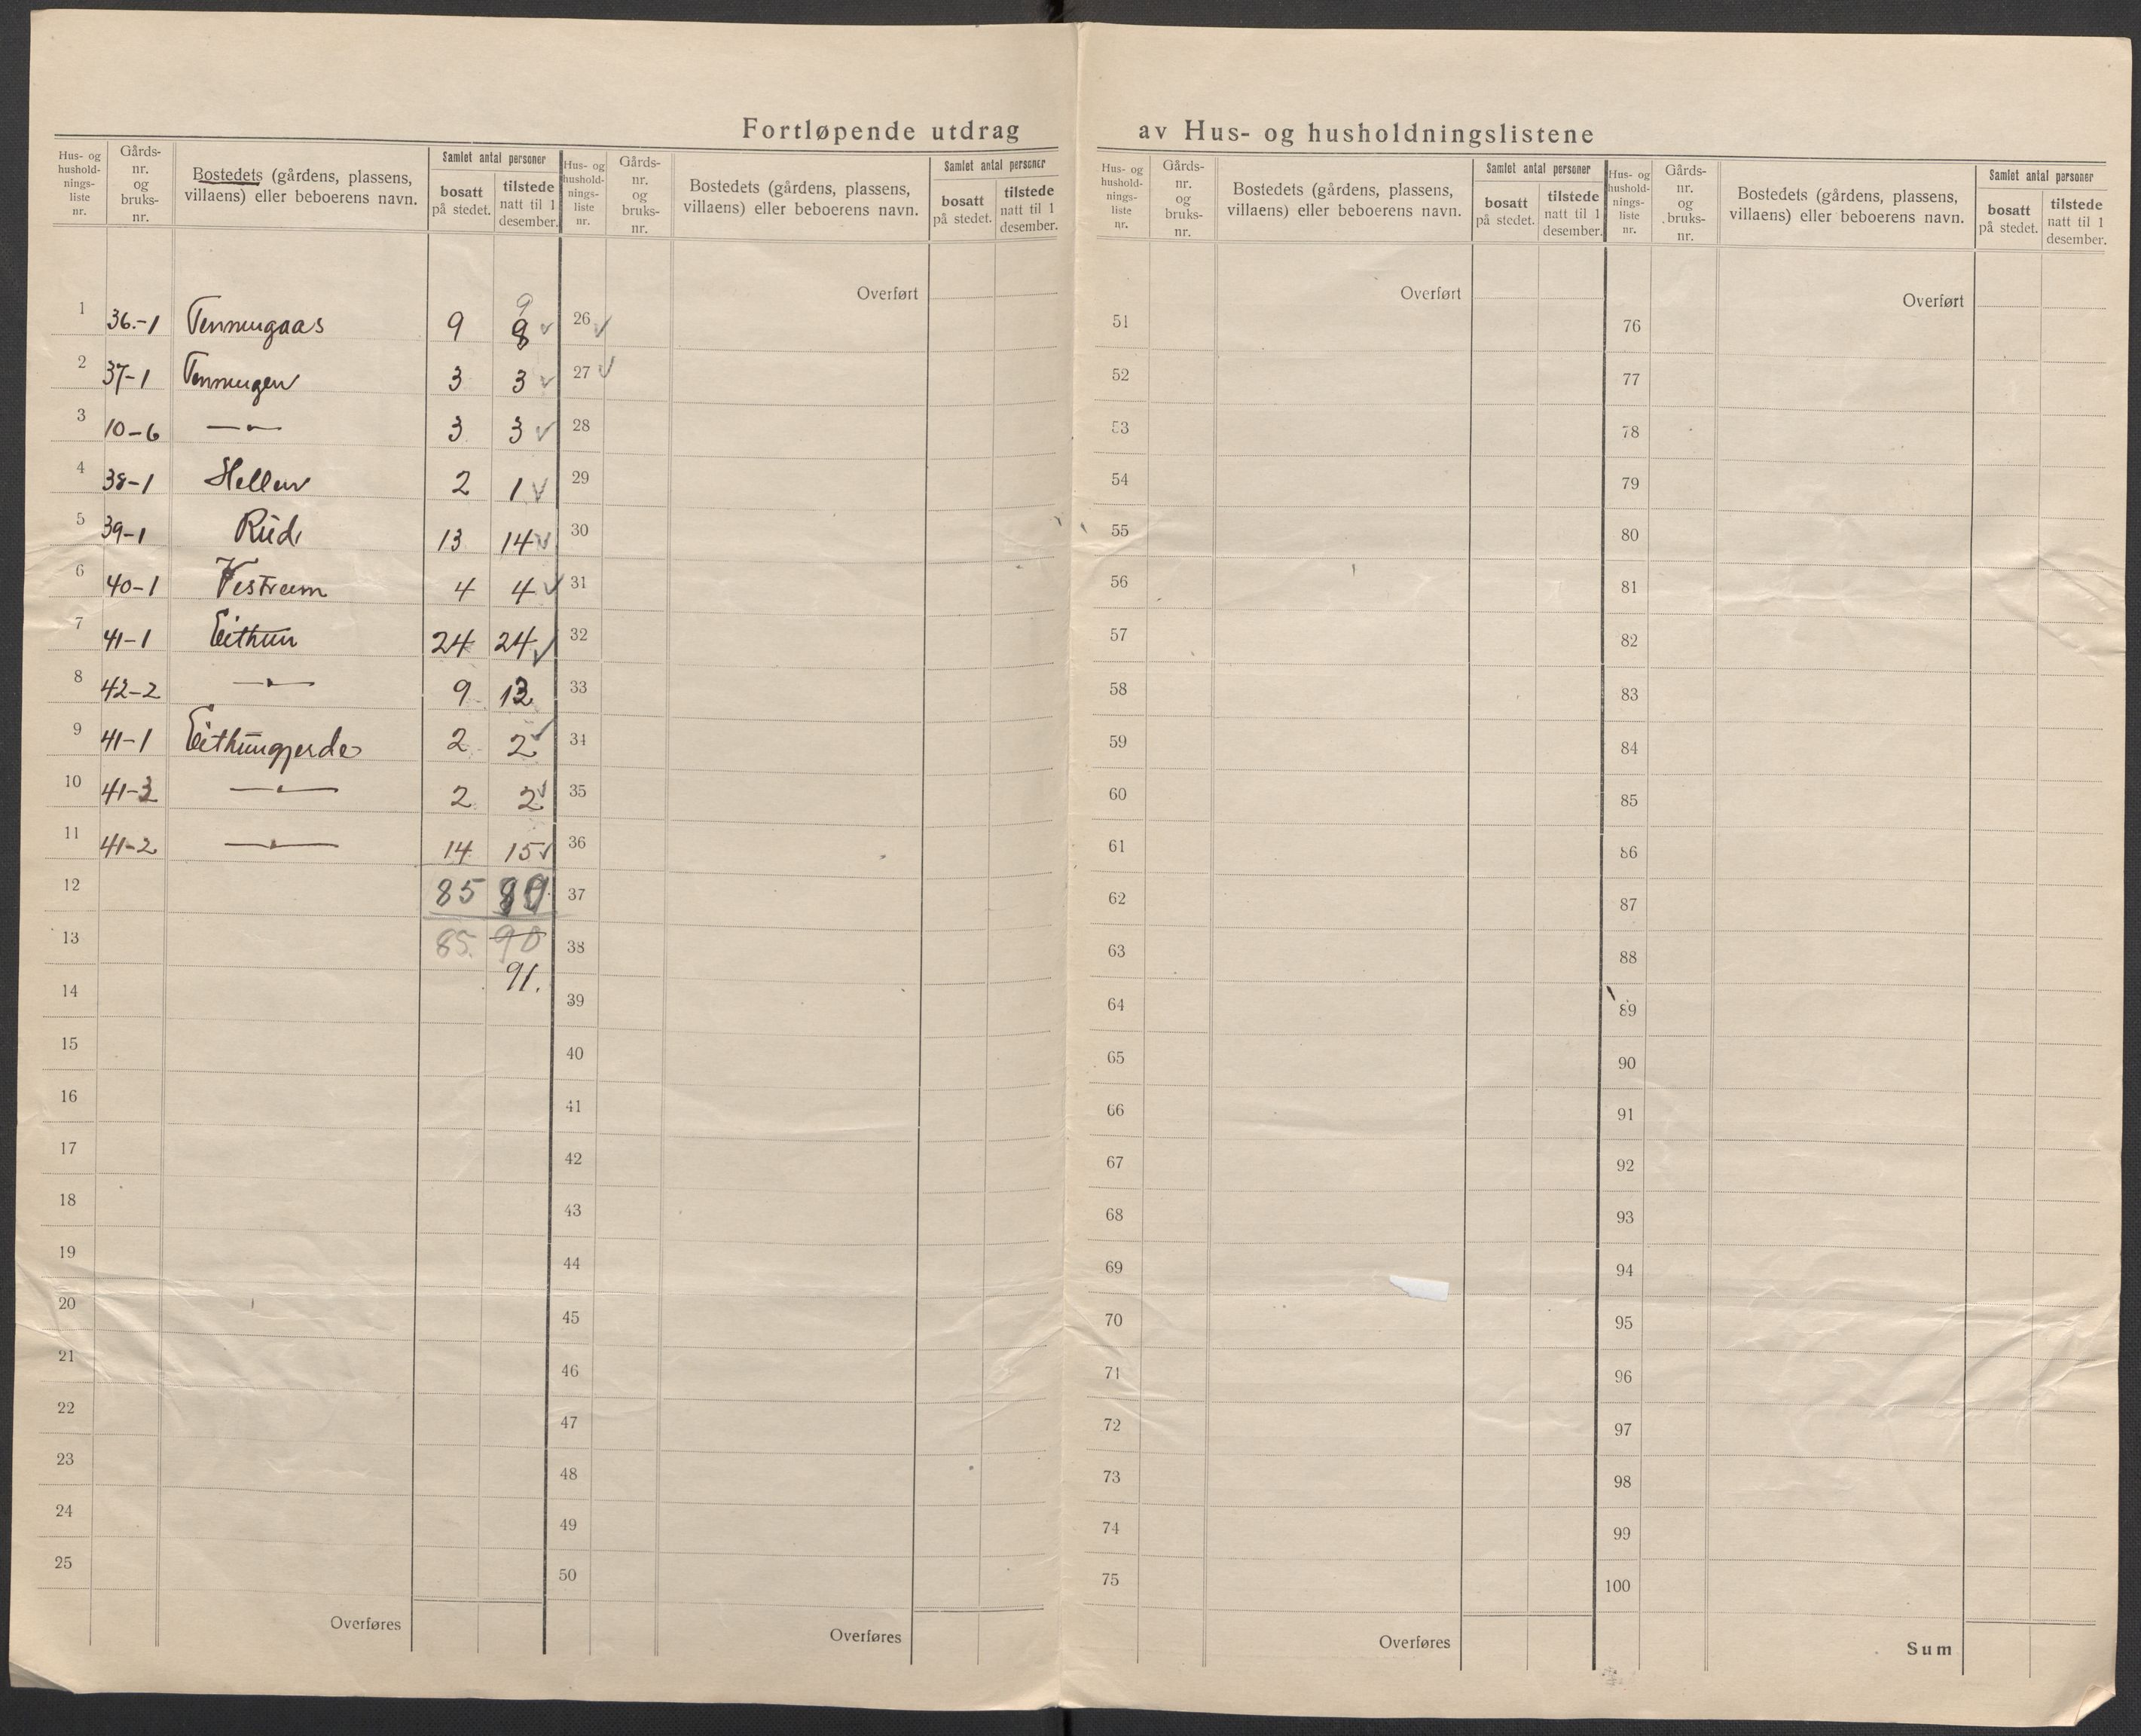 Fortløpende utdrag av Hus- og husholdningslistene
Hus- og hushold-nings-liste nr. Gårds-nr. og bruks-nr. Bostedets (gårdens, plassens, villaens) eller beboerens navn. Samlet antal personer bosatt på stedet. tilstede natt til 1 desember.
Hus- og hushold-nings-liste nr. Gårds-nr. og bruks-nr. Bostedets (gårdens, plassens, villaens) eller beboerens navn. Samlet antal personer bosatt på stedet. tilstede natt til 1 desember.
Hus- og hushold-nings-liste nr. Gårds-nr. og bruks-nr. Bostedets (gårdens, plassens, villaens) eller beboerens navn. Samlet antal personer bosatt på stedet. tilstede natt til 1 desember.
Hus- og hushold-nings-liste nr. Gårds-nr. og bruks-nr. Bostedets (gårdens, plassens, villaens) eller beboerens navn. Samlet antal personer bosatt på stedet. tilstede natt til 1 desember.
9
1 36.-1 9 8 ✓
2 37-1 3 3 ✓
3 10-6 —"— 3 3 ✓
4 38-1 Hellen 2 1 ✓
5 39-1 Rud 13 14 ✓
6 40-1 Vestreim 4 4 ✓
7 41-1 Eithun 24 24 ✓
8 42-2 —"— 9 13
9 41-1 Eithungjerde 2 2 ✓
10 41-3 —"— 2 2 ✓
11 41-2 —"— 14 15 ✓
12 85
13 85. 90
91.
14
15
16
17
18
19
20
21
22
23
24
25
Overføres
Overført
26 ✓
27 ✓
28
29
30
31
32
33
34
35
36
37
38
39
40
41
42
43
44
45
46
47
48
49
50
Overføres
Overført
51
52
53
54
55
56
57
58
59
60
61
62
63
64
65
66
67
68
69
70
71
72
73
74
75
Overføres
Overført
76
77
78
79
80
81
82
83
84
85
86
87
88
89
90
91
92
93
94
95
96
97
98
99
100
Sum